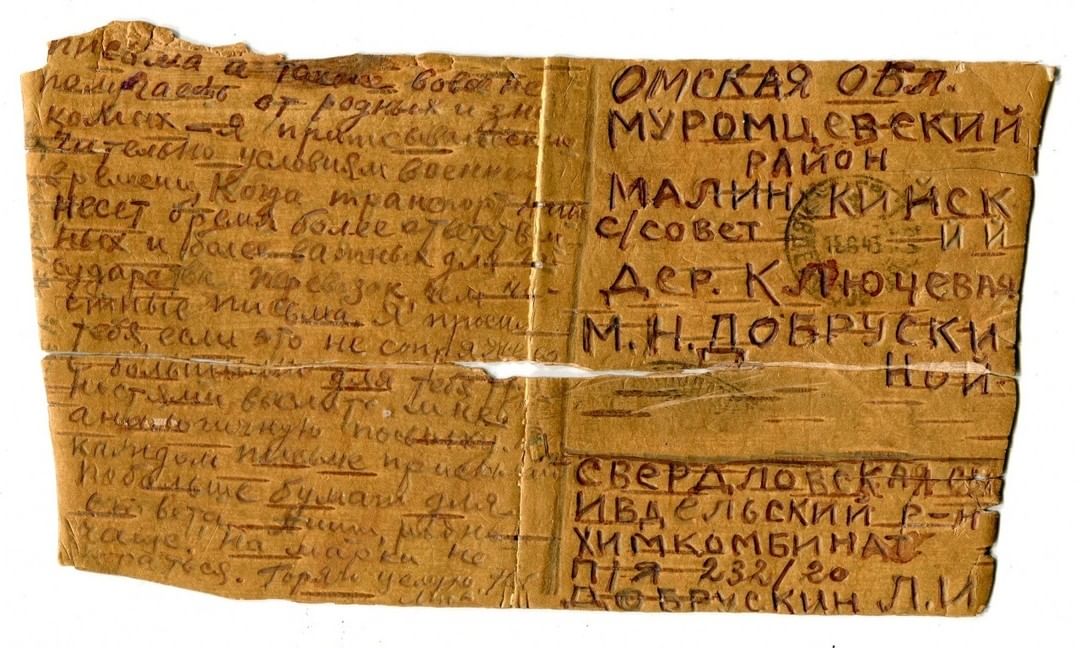 письма а также вовсе не
получаешь от родных и зна
комых – я приписываю исклю
чительно условиям военного
времени, когда транспорт
несет бремя более ответствен
ных и более важных для го
сударства перевозок, чем
стные письма. Я просил
тебя, если это не сопряжено
с большими для тебя труд
ностями, выслать
аналогичную посылку.
каждом письме присылай
побольше бумаги для
ответа. Пиши, родная
чаще. На марки не
траться. Горячо целую
ОМСКАЯ ОБЛ.
МУРОМЦЕВСКИЙ
РАЙОН
МАЛИНКИЙСК
С/СОВЕТ ИЙ
15.6.43
ДЕР. КЛЮЧЕВАЯ
М.Н. ДОБРУСКИ
НОЙ.
СВЕРДЛОВСКАЯ
ИВДЕЛЬСКИЙ Р-Н
ХИМКОМБИНАТ
П/Я 232/20
ДОБРУСКИН Л.И